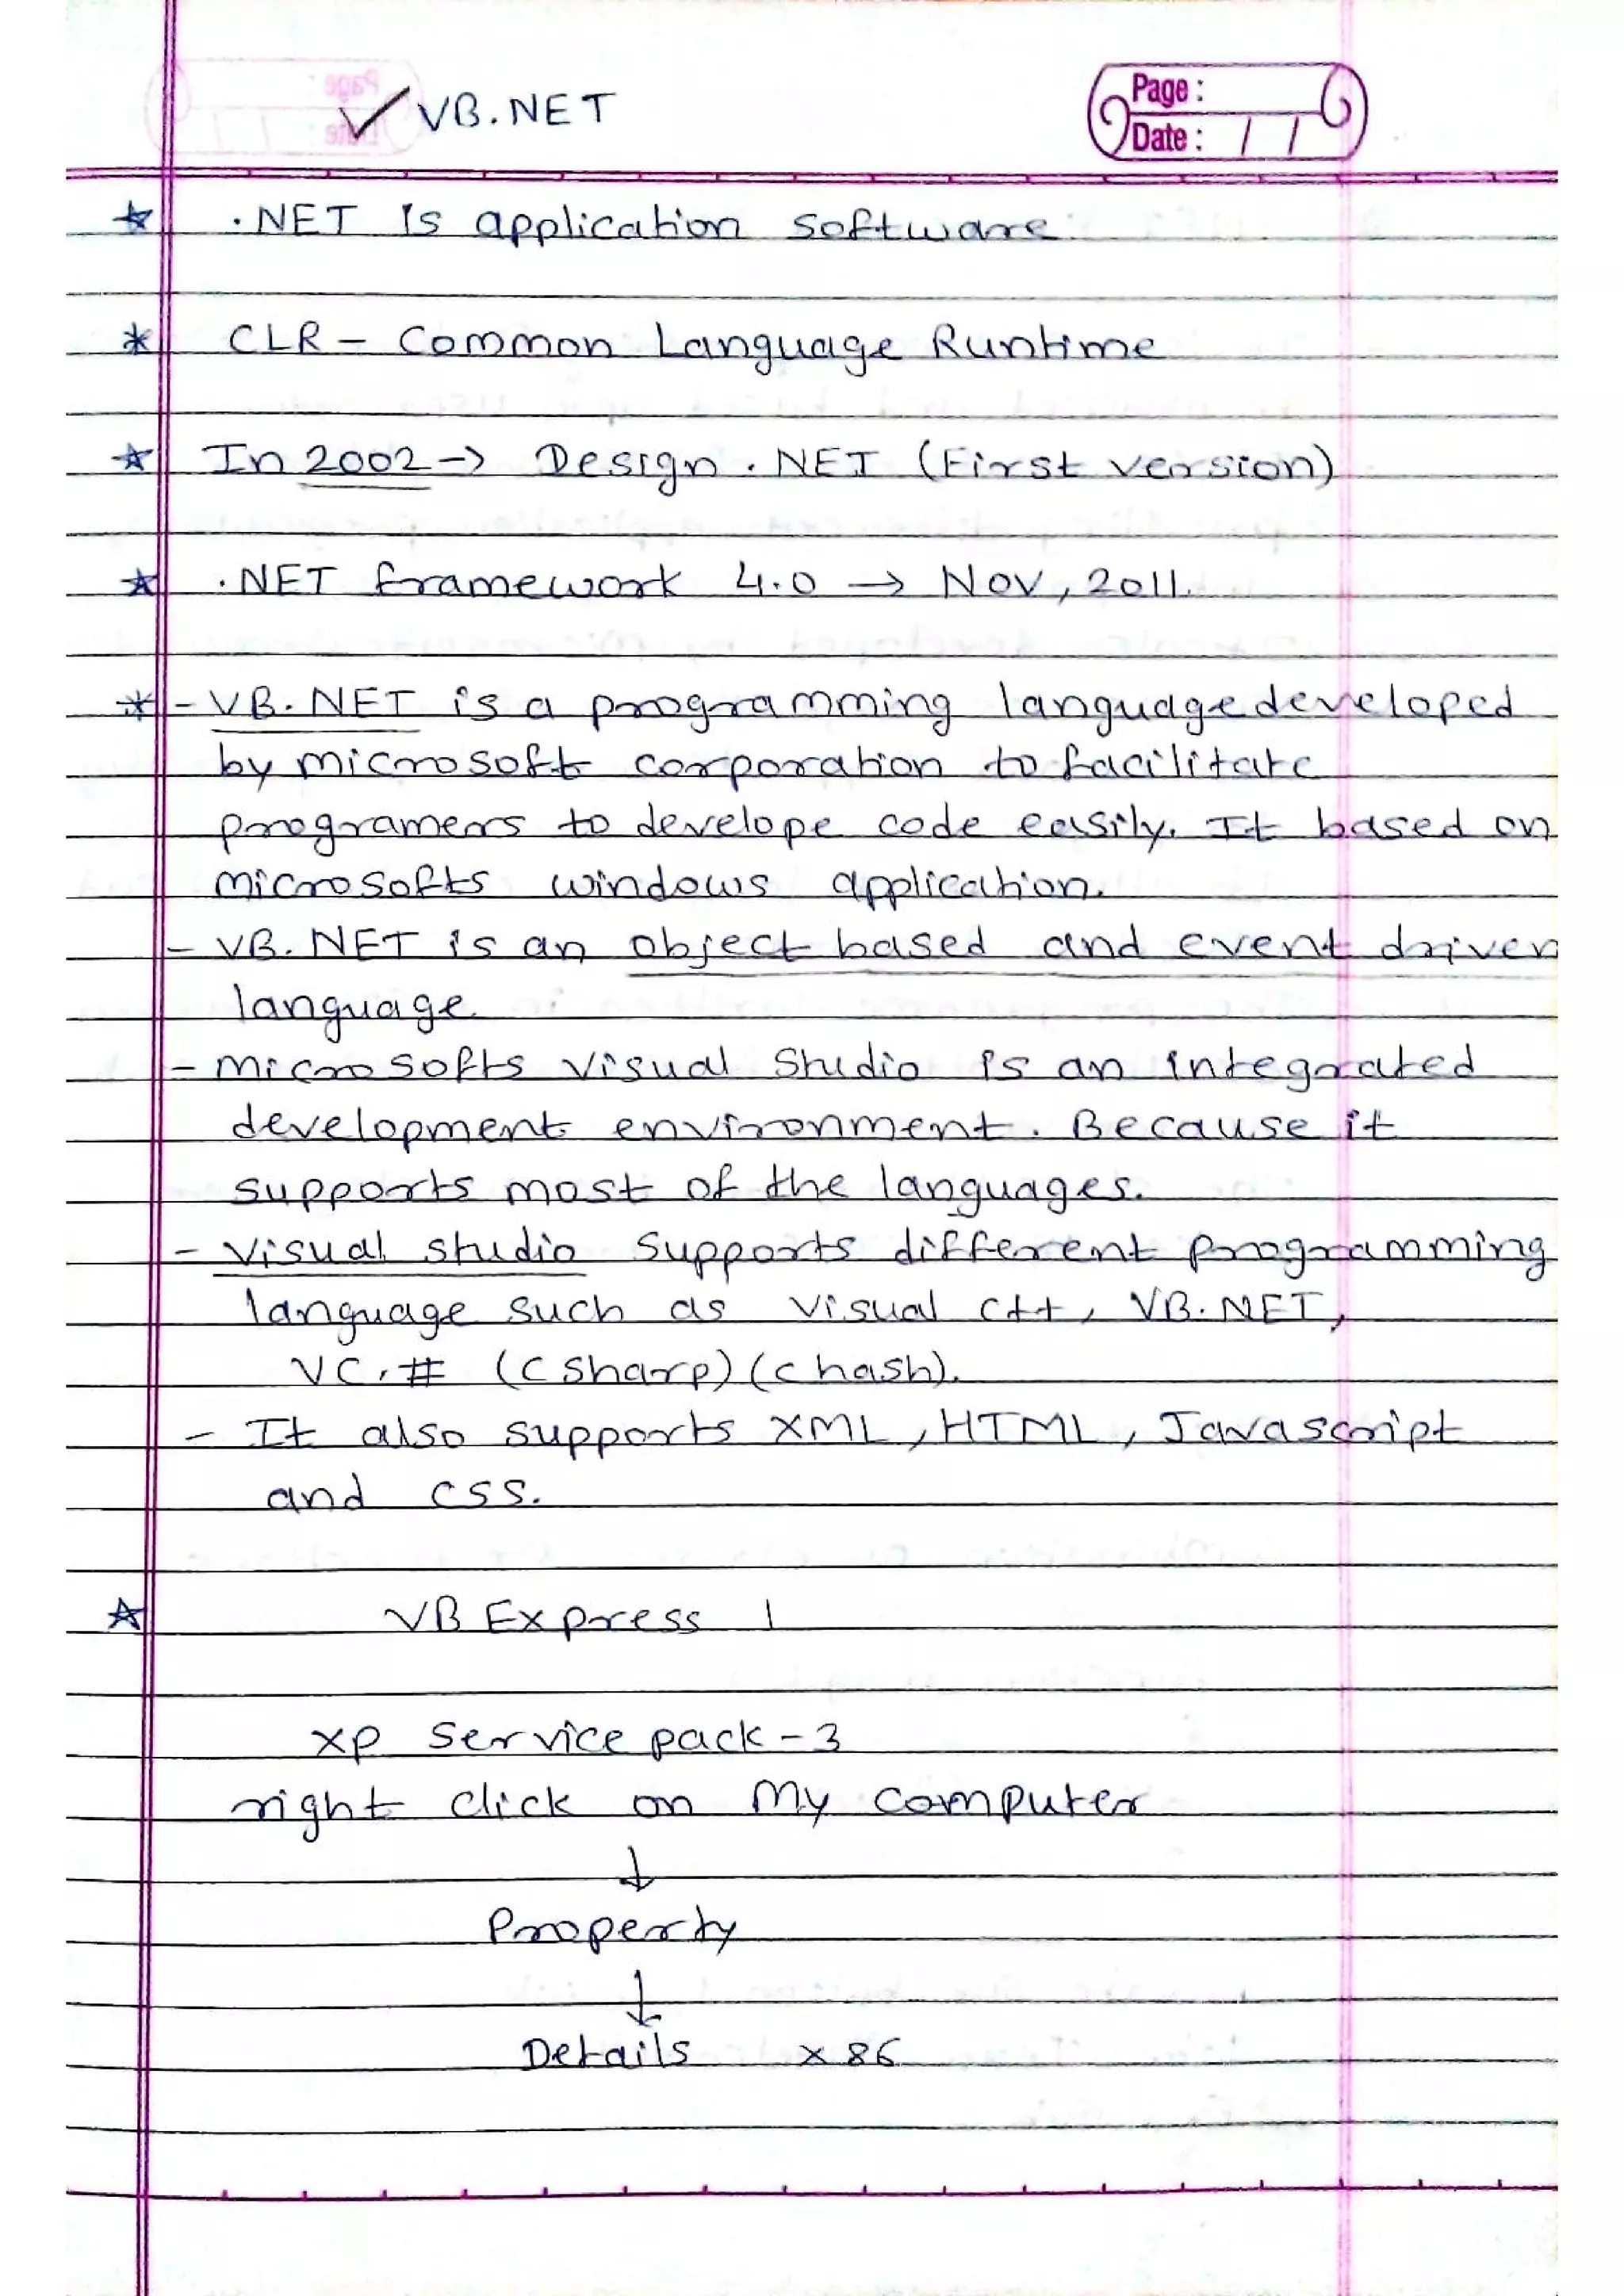 ✓ VB.NET
Page :
Date : / /
☆ .NET Is application software
* CLR - Common Language Runtime
☆ In 2002 -> Design .NET (First version)
☆ .NET framework 4.0 → Nov, 2011.
* - VB.NET is a programming language developed
by microsoft corporation to facilitate
programers to develope code easily. It based on
microsofts windows application.
- VB.NET is an object based and event driven
language.
- microsofts visual Studio is an integrated
development environment. Because it
supports most of the languages.
- Visual studio supports different programming
language such as visual C++, VB.NET,
VC.# (C sharp) (c hash).
- It also supports XML, HTML, Javascript
and CSS.
☆ VB Express 1
xp Service pack - 3
right click on My computer
↓
Property
↓
Details x86